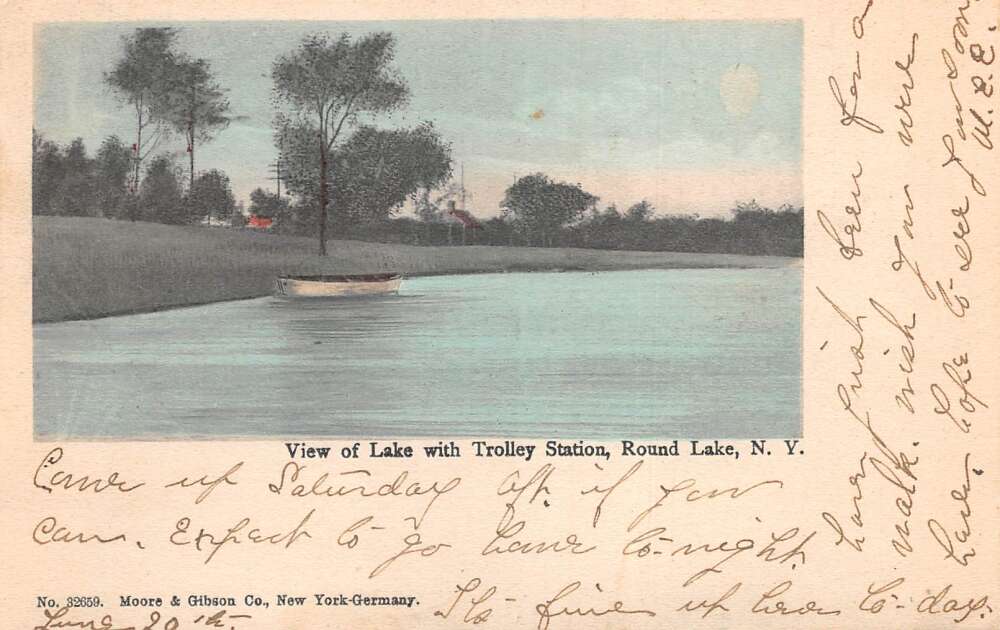 View of Lake with Trolley Station, Round Lake, N. Y.
Come up Saturday Aft. if you
can. Expect to go home to-night.
Its fine up here to-day.
No. 32659. Moore & Gibson Co., New York-Germany.
June 20th.
have just been for a
walk. wish you were
here. hope to see you soon
M.E.E.